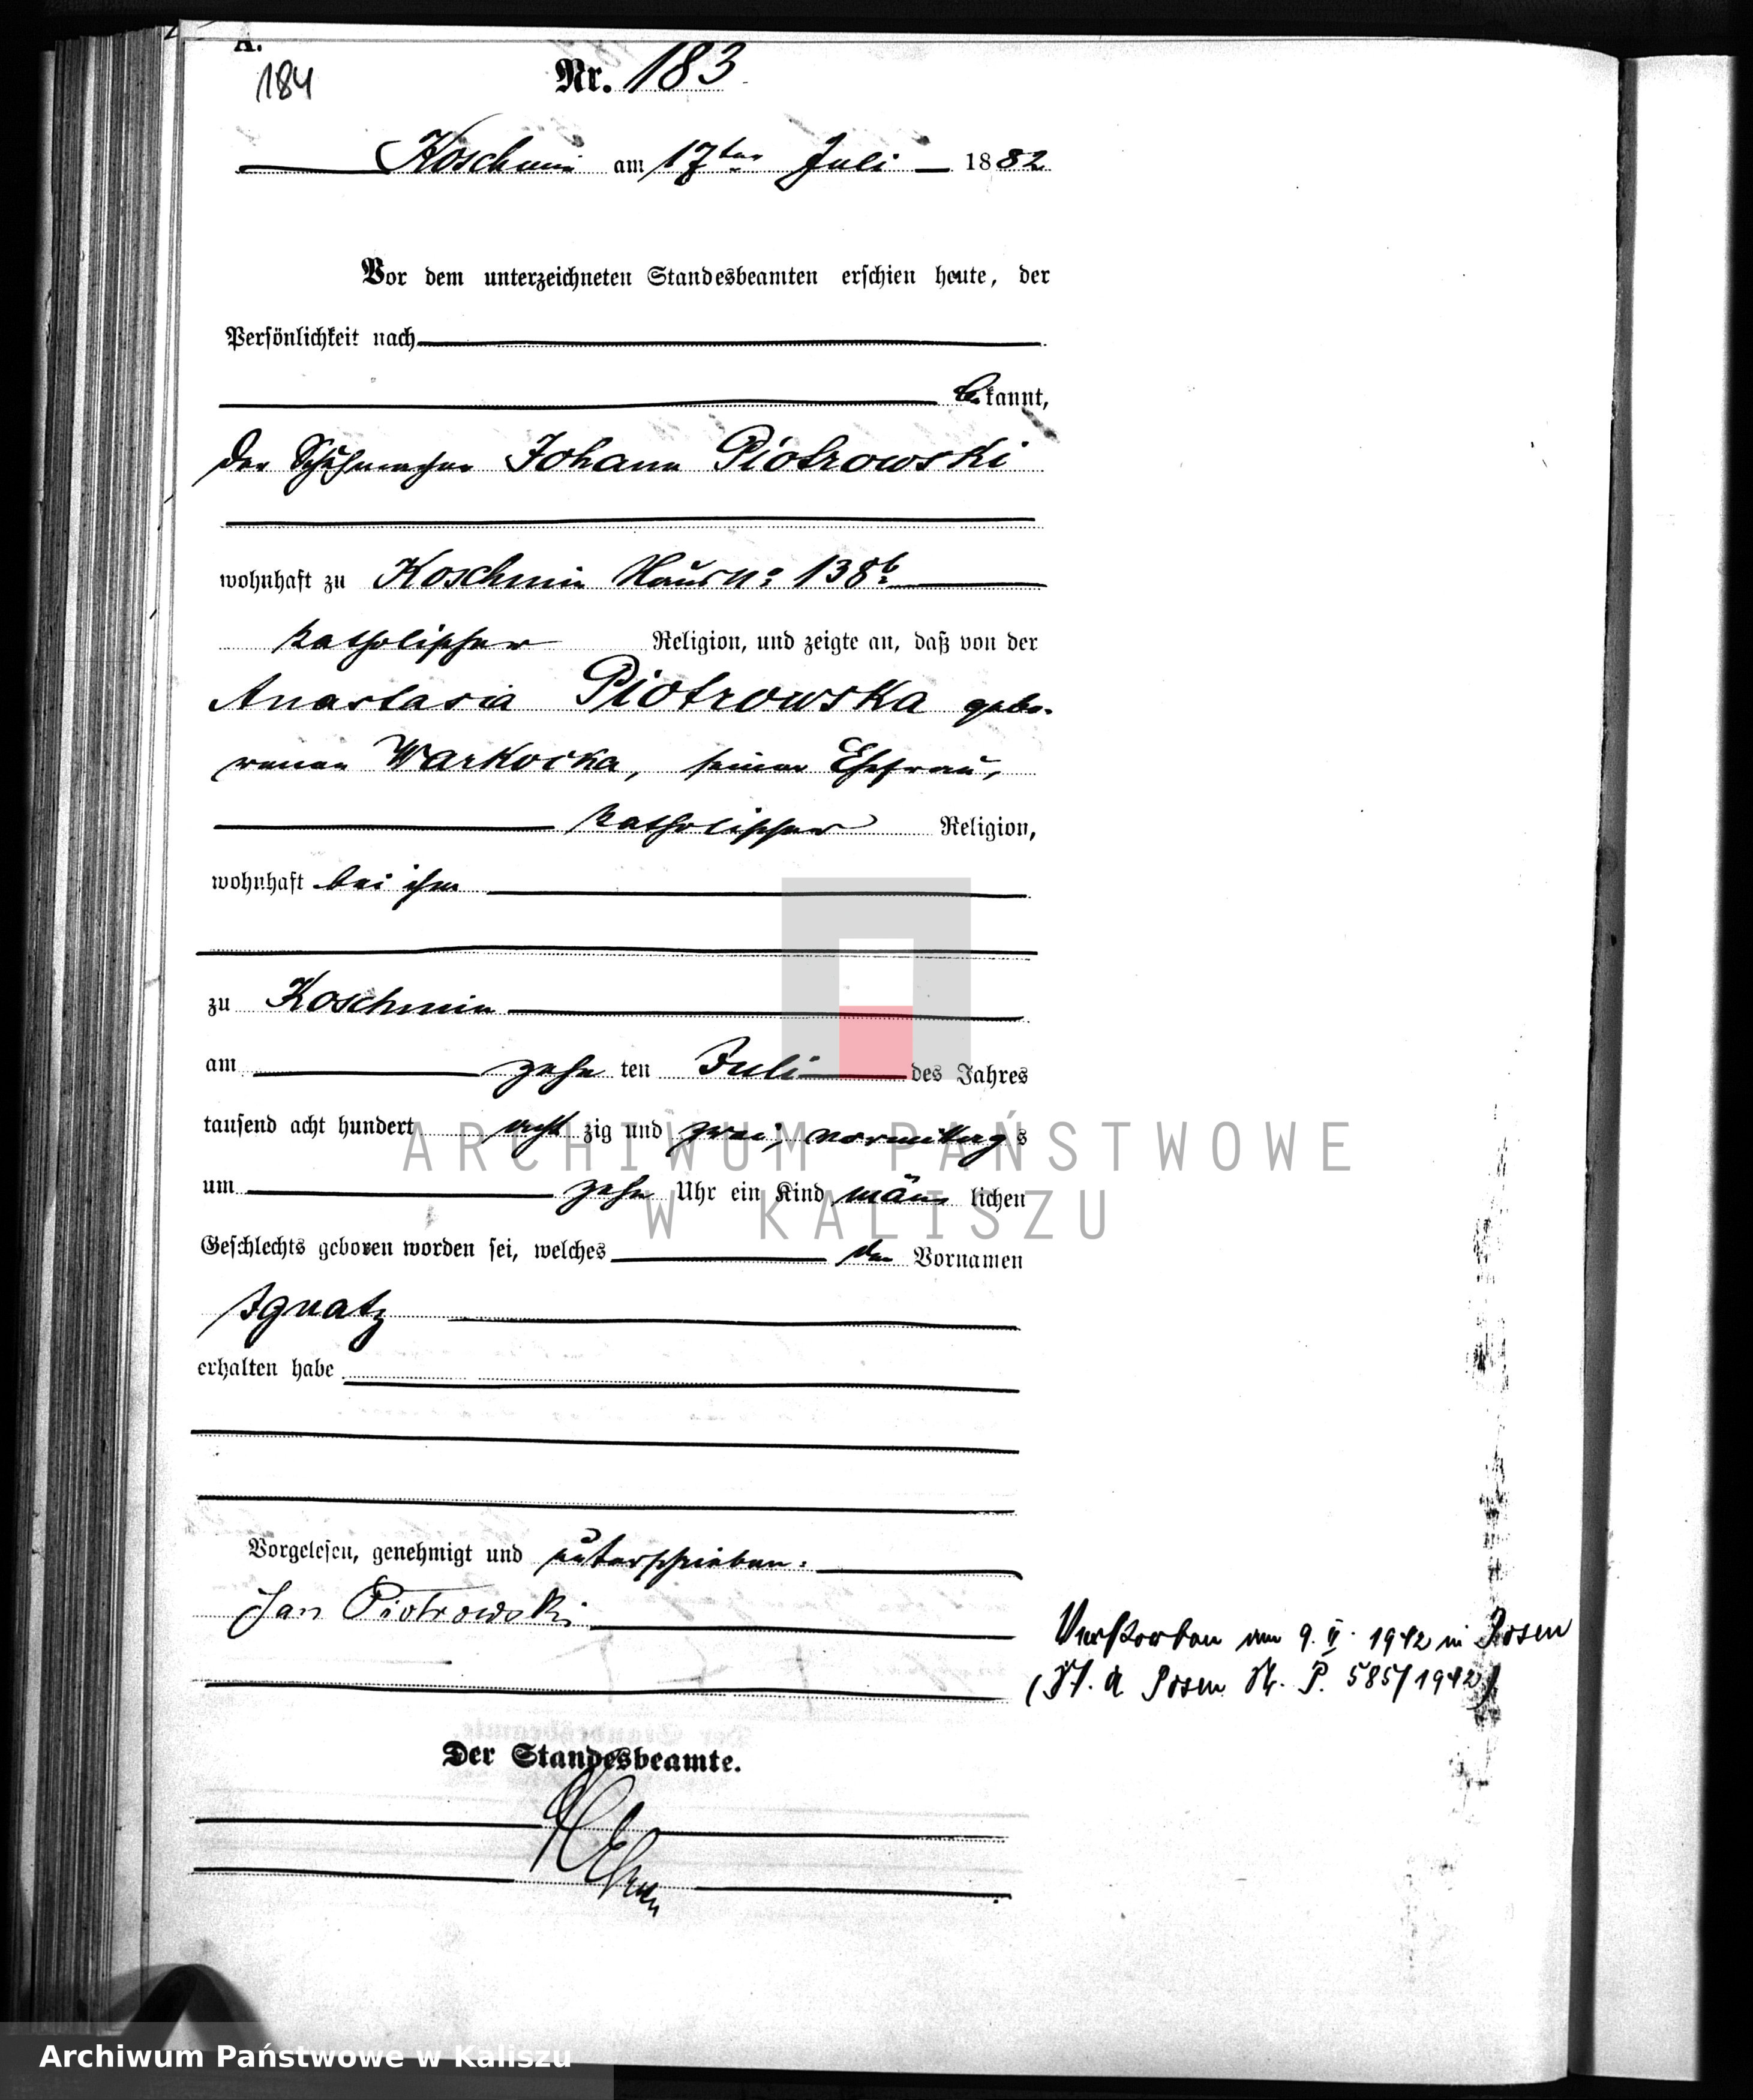 A.
184
Nr. 183
Koschmin am 17ten Juli 1882
Vor dem unterzeichneten Standesbeamten erschien heute, der
Persönlichkeit nach
bekannt,
der Schuhmacher Johann Piotrowski
wohnhaft zu Koschmin Haus No: 138b
katholischer Religion, und zeigte an, daß von der
Anastasia Piotrowska gebo-
renen Warkocka, seiner Ehefrau,
katholischer Religion,
wohnhaft bei ihm
zu Koschmin
am zehn ten Juli des Jahres
tausend acht hundert acht zig und zwei, vormittags
um zehn Uhr ein Kind män lichen
Geschlechts geboren worden sei, welches den Vornamen
Ignatz
erhalten habe
Vorgelesen, genehmigt und unterschrieben:
Jan Piotrowski
Verstorben am 9. II. 1942 in Posen
(St. A Posen Nr. P. 585/1942)
Der Standesbeamte.
ARCHIWUM PAŃSTWOWE
W KALISZU
Archiwum Państwowe w Kaliszu